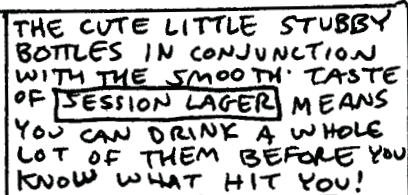 THE CUTE LITTLE STUBBY
BOTTLES IN CONJUNCTION
WITH THE SMOOTH TASTE
OF SESSION LAGER MEANS
YOU CAN DRINK A WHOLE
LOT OF THEM BEFORE YOU
KNOW WHAT HIT YOU!